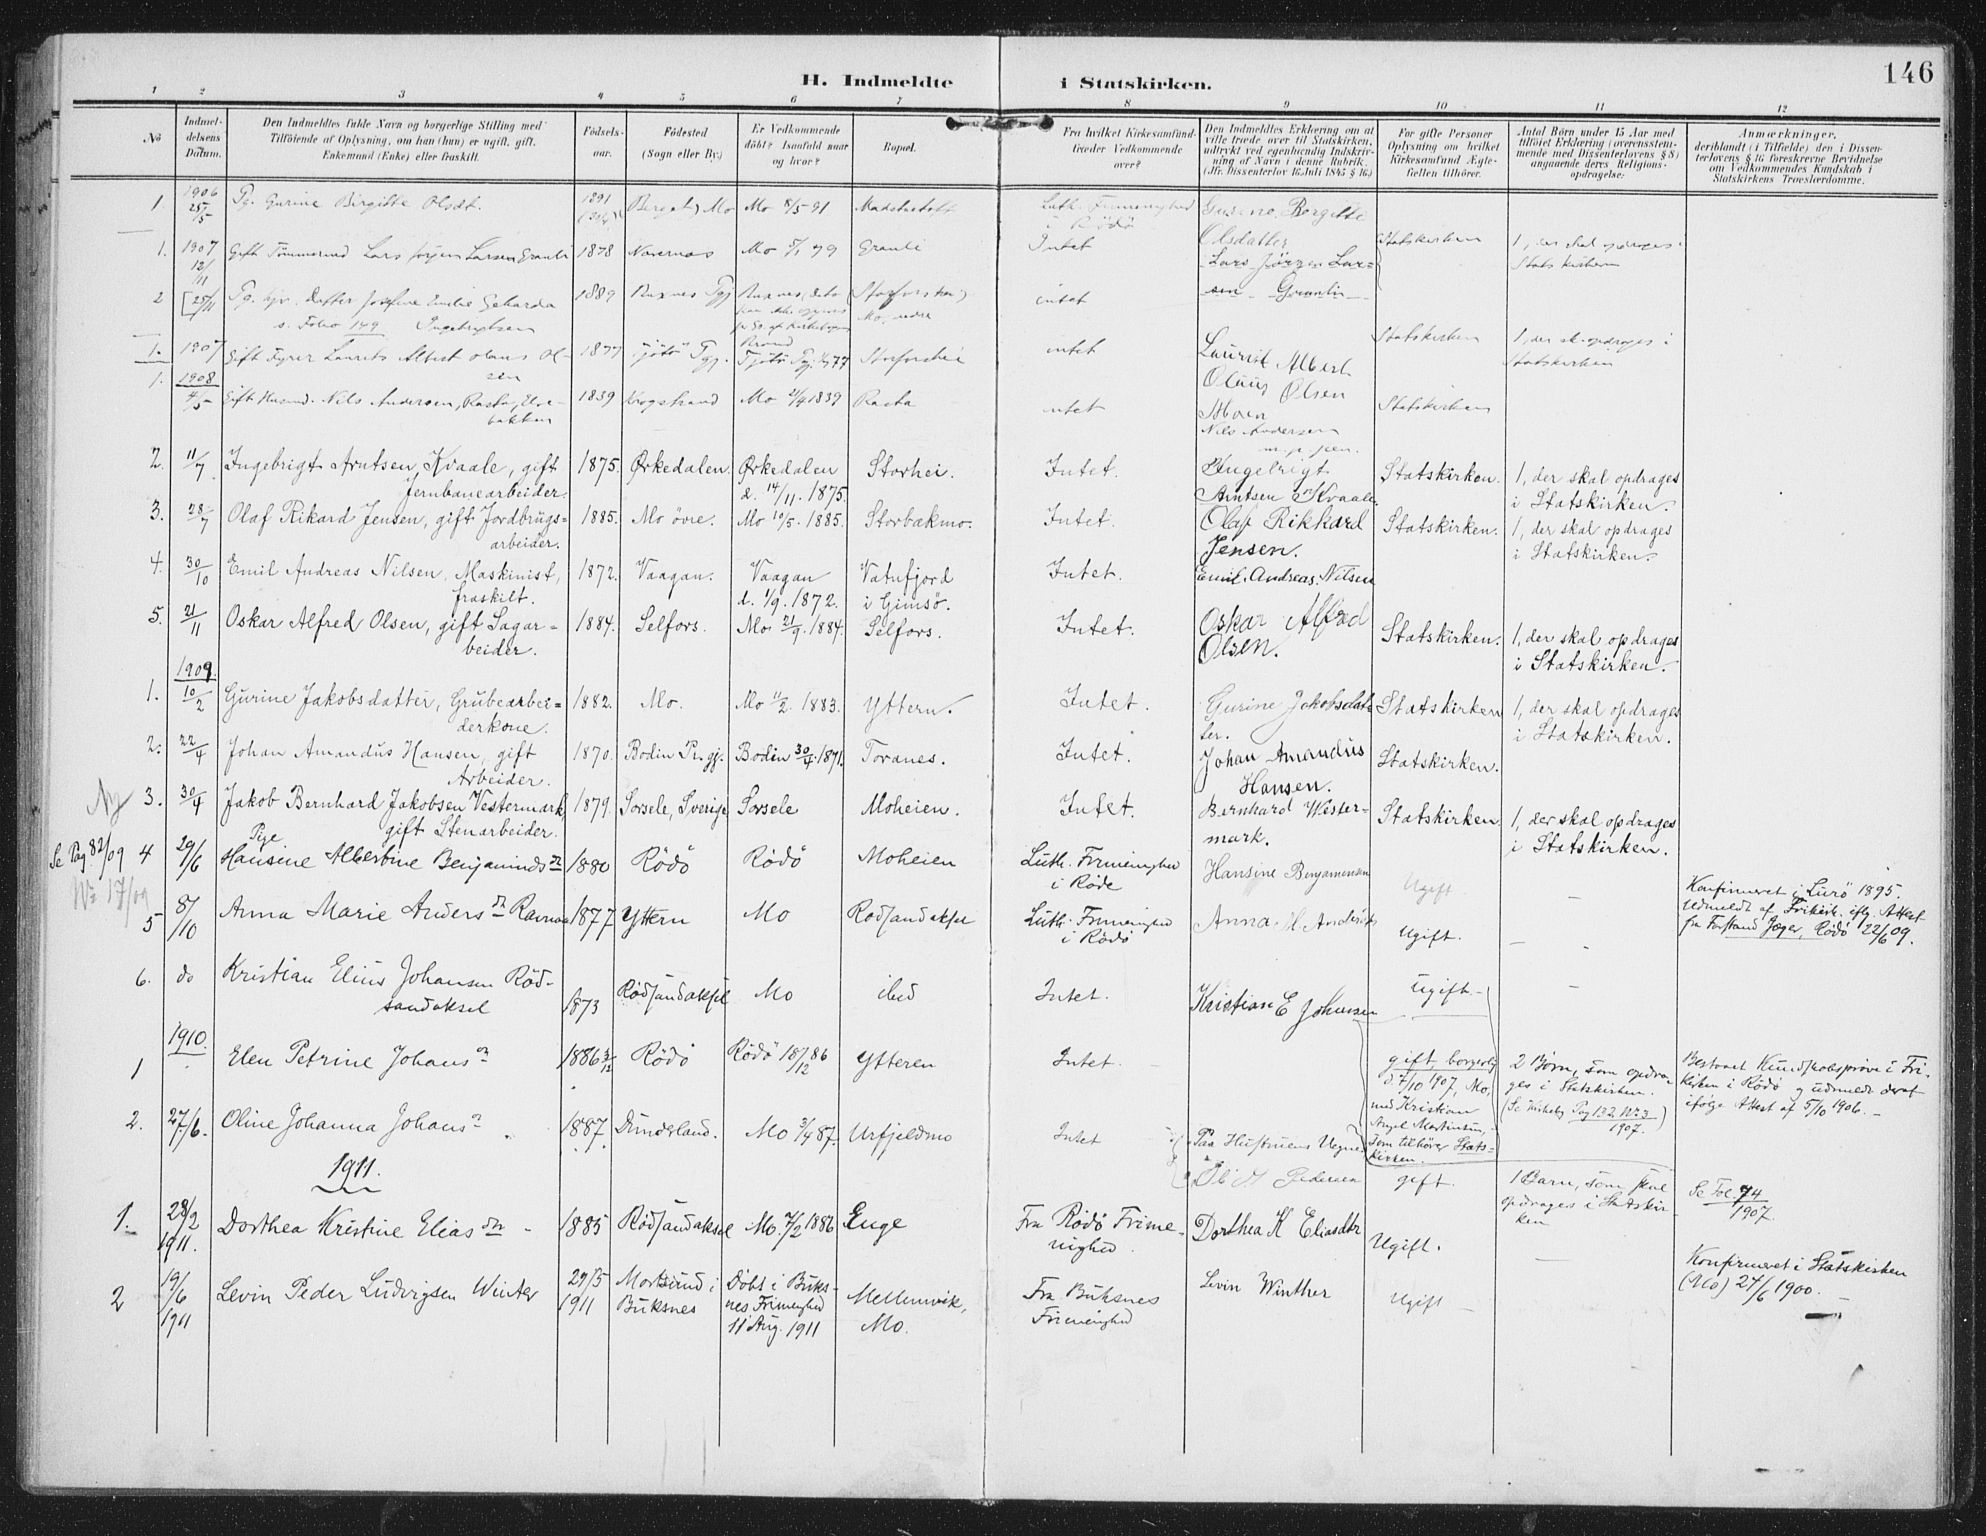 146
H. Indmeldte i Statskirken.
1 2 3 4 5 6 7 8 9 10 11 12
No
Indmel-
delsens
Datum.
Den Indmeldtes fulde Navn og borgerlige Stilling med
Tilföiende af Oplysning, om han (hun) er ugift, gift,
Enkemand (Enke) eller fraskilt.
Födsels-
aar.
Födested
(Sogn eller By.)
Er Vedkommende
döbt? Isaafald naar
og hvor?
Bopæl.
Fra hvilket Kirkesamfund-
træder Vedkommende
over?
Den Indmeldtes Erklæring om at
ville træde over til Statskirken,
udtrykt ved egenhændig Indskriv-
ning af Navn i denne Rubrik.
(Jfr. Dissenterlov 16 Juli 1845 § 16.)
For gifte Personer
Oplysning om hvilket
Kirkesamfund Ægte-
fællen tilhörer.
Antal Börn under 15 Aar med
tilföiet Erklæring (overensstem-
mende med Dissenterlovens § 8)
angaaende deres Religions-
opdragelse:
Anmærkninger,
deriblandt (i Tilfælde) den i Dissen-
terlovens § 16 foreskrevne Bevidnelse
om Vedkommendes Kundskab i
Statskirkens Troeslærdomme.
1. 1906 25/5 Pg. Gurine Birgitte Olsdt. 1891 Mo Mo 8/5 91 Luth. Frimenighed i Rödö Gurine Borgitte Olsdatter
1. 1907 12/11 Gift Tömmermd Lars Jörgen Larsen Granli 1878 Mo 5/1 79 Granli Intet Lars Jörgen Larsen Granlin Statskirken 1, der skal opdrages i Statskirken
2 [25/11 Pg. Datter Josefine Emilie Geharda Ingebrigtsen s. Folio 149 1889 intet
1. 1907 Gift Fyrer Laurits Albert Olaus Olsen 1877 Tjötö Pgj. Storforshei intet Laurits Albert Olaus Olsen Statskirken 1, der sk. opdrages i Statskirken
1. 1908 4/5 Gift Husmd. Nils Andersen, Rasta, 1839 Mo 4/4 1839 Rasta intet Nils Andersen m. p. pen. Statskirken
2. 11/7 Ingebrigt Arntsen Kvaale, gift Jernbanearbeider. 1875. Ørkedalen. Ørkedalen d. 14/11. 1875. Storhei. Intet. Ingebrigt Arntsen Kvaale Statskirken. 1, der skal opdrages i Statskirken.
3. 28/7 Olaf Rikard Jensen, gift Jordbrugsarbeider. 1885. Mo övre. Mo 10/5. 1885. Storbakmo. Intet. Olaf Rikkard Jensen. Statskirken. 1, der skal opdrages i Statskirken.
4. 30/10 Emil Andreas Nilsen, Maskinist, fraskilt. 1872. Vaagan. Vaagan d. 1/9. 1872. Vatnfjord i Gimsö. Intet. Emil. Andreas. Nilsen
5. 21/11 Oskar Alfred Olsen, gift Sagarbeider. 1884. Selfors. Mo. 21/9. 1884. Selfors. Intet. Oskar Alfred Olsen. Statskirken. 1, der skal opdrages i Statskirken.
1909.
1. 10/2 Gurine Jakobsdatter, Grubearbeiderkone. 1882. Mo. Mo 11/2. 1883. Yttern. Intet. Gurine Jakobsdatter. Statskirken 1, der skal opdrages i Statskirken.
2. 22/4 Johan Amandus Hansen, gift Arbeider. 1870. Bodin Pr.gj. Bodin 30/4. 1871. Toranes. Intet. Johan Amandus Hansen. Statskirken.
3. 30/4 Jakob Bernhard Jakobsen Vestermark, gift Stenarbeider. 1879. Sorsele, Sverige Sorsele Moheien. Intet. Bernhard Westermark. Statskirken 1, der skal opdrages i Statskirken.
Se Pag 82/09 4 29/6 Pige Hansine Albertine Benjaminsdn 1880 Rödö Rödö Moheien Luth. Frimenighed i Røde Hansine Benjamensen Ugift — Konfirmeret i Lurö 1895. Udmeldt af Frikirk. iflg. Attest fra Forstand Jæger, Rödö 22/6 09.
No 17/09
5 8/10 Anna Marie Andersdn Ravnaa 1877 Yttern Mo Rödsandaksel Luth. Frimenighed i Rödö Anna M. Andersen Ugift. —
6. do Kristian Elius Johansen Rödsandaksel 1873 Rödsandaksel Mo ibid Intet. Kristian E Johansen Ugift. —
1910.
1 Elen Petrine Johansn 1886 3/12 Rödö Rödö 18 7/12 86 Ytteren Intet. gift, borgerlig d. 7/10 1907, Mo, med Kristian Angel Martinsen, som tilhører Statskirken. 2 Börn, som opdrages i Statskirken. (Se Kirkebg Pag 132 No 3 1907.) Bestaaet Kundskabsprøve i Frikirken i Rödö og udmeldt deraf ifølge Attest af 5/10 1906. —
2. 27/6. Oline Johanna Johansn 1887. Dunderland. Mo 3/4 87. Urfjeldmo Intet Paa Hustruens Vegne Ol J Pedersen gift. 1 Barn, som skal opdrages i Statskirken Se Fol. 74 1907.
1911.
1. 28/2 1911. Dorthea Kristine Eliasdn 1885 Rödsandaksel Mo. 7/2 1886 Enge Fra Rödö Frimenighed. Dorthea K Eliasdtr Ugift. — Konfirmeret i Statskirken (Mo) 24/6 1900. —
2 19/6 1911 Levin Peder Ludvigsen Winter 29/5 1911 Mortsund i Buksnes Döbt i Buksnes Frimenghed 11 Aug. 1911 Mellemvik, Mo. Fra Buksnes Frimenighed Levin Winther Ugift —